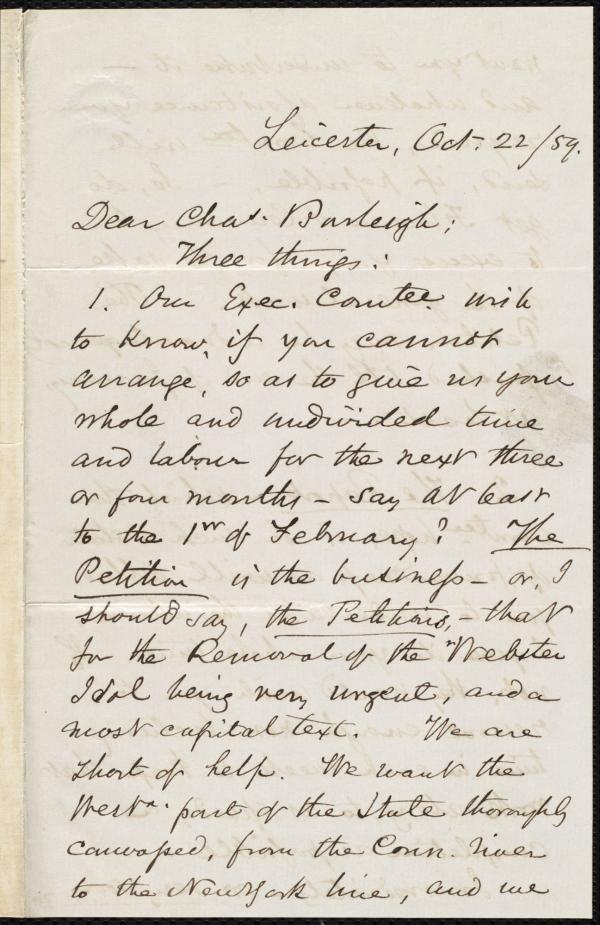 Leicester, Oct. 22/59.
Dear Chas. Burleigh;
Three things:
1. Our Exec. Comtee. wish
to know, if you cannot
arrange, so as to give us your
whole and undivided time
and labour for the next three
or four months – say at least
to the 1st of February? The
Petition is the business – or, I
should say, the Petitions, – that
for the Removal of the "Webster
Idol being very urgent, and a
most capital text. We are
short of help. We want the
Westn. part of the State thoroughly
canvassed, from the Conn. river
to the New York line, and we